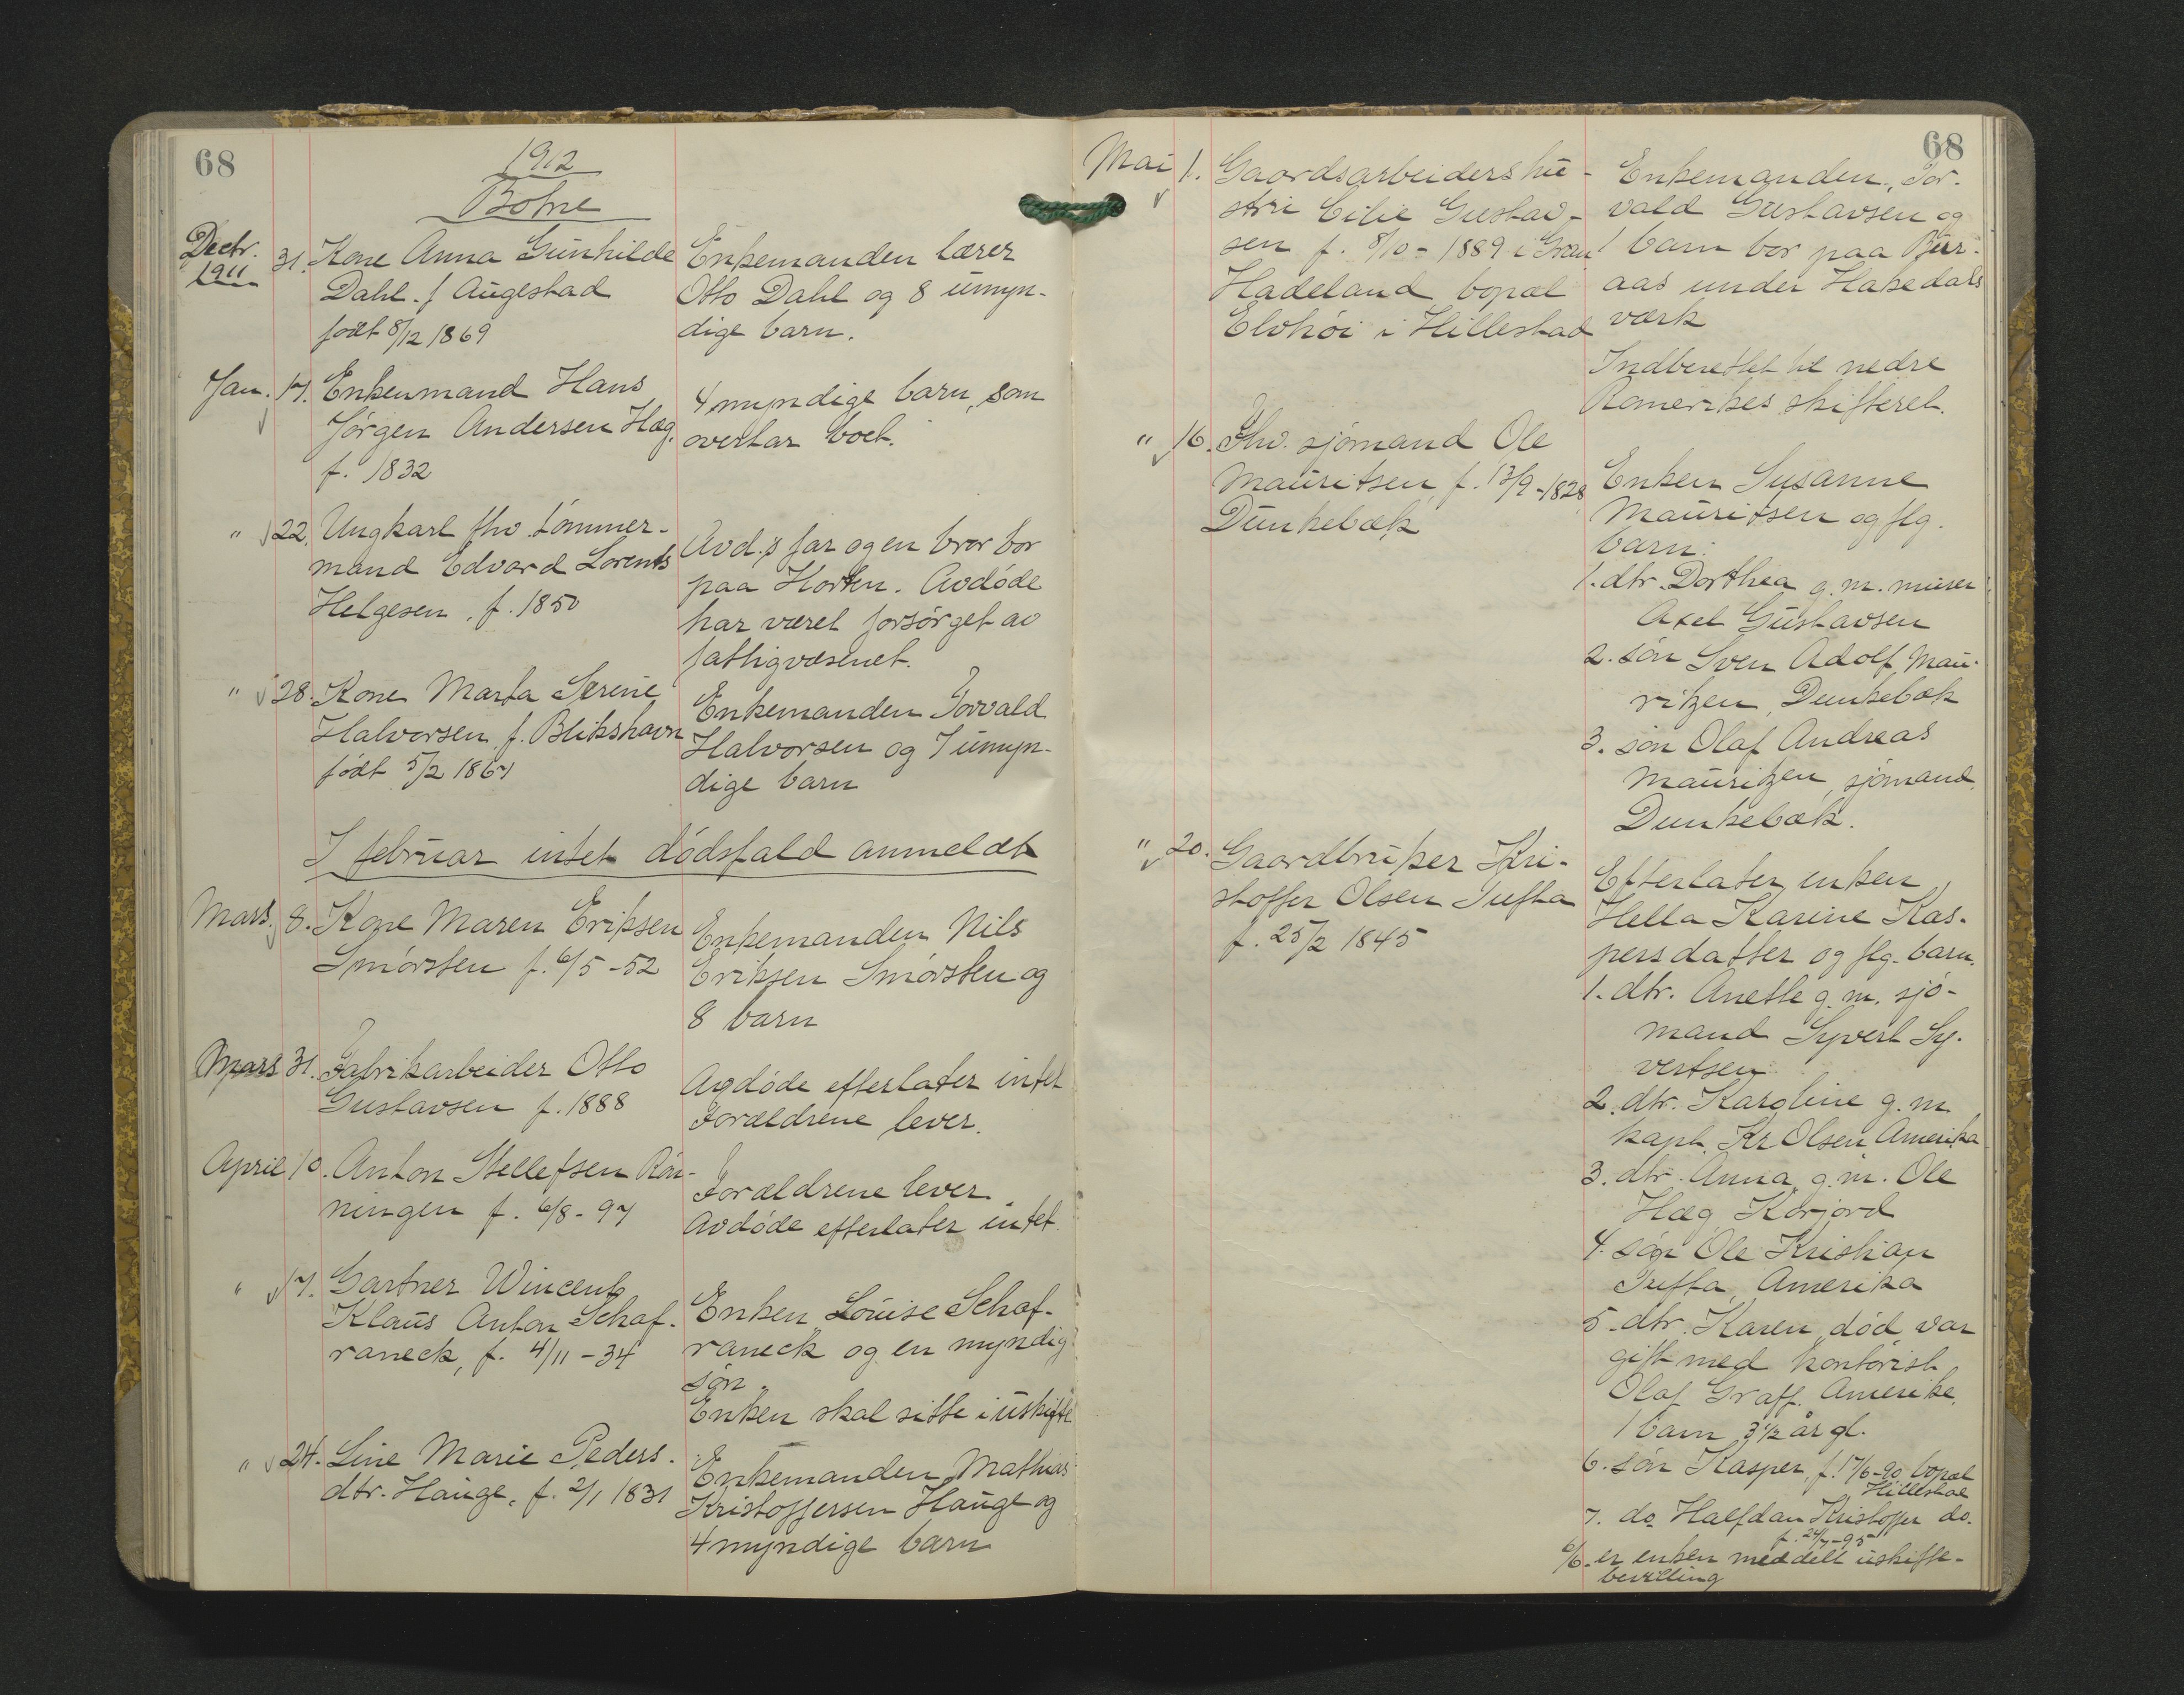 68
1912
Botne
Dectr. 1911 31. Kone Anna Gunhilde
Dahl. f Augestad
født 8/12 1869
Enkemanden lærer
Otto Dahl og 8 umyn-
dige barn.
Jan. 17. Enkemand Hans
Jørgen Andersen Hæg.
f. 1832
4 myndige barn, som
overtar boet.
" 22. Ungkarl fhv. tømmer-
mand Edvard Lorents
Helgesen, f. 1850
Avd.s far og en bror bor
paa Horten. Avdøde
har været forsørget av
fattigvæsenet.
" 28. Kone Marta Serine
Halvorsen f. Blikshavn
født 5/2 1867
Enkemanden Torvald
Halvorsen og 7 umyn-
dige barn
I februar intet dødsfald anmeldt
Mars. 8. Kone Maren Eriksen
Smørsten f. 6/5 -52
Enkemanden Nils
Eriksen Smørsten og
8 barn
Mars 31. Fabrikarbeider Otto
Gustavsen f. 1888
Avdøde efterlater intet
Forældrene lever.
April 10. Anton Stellefsen Røn-
ningen f. 6/8 - 97
Forældrene lever.
Avdøde efterlater intet.
" 17. Gartner Wincent
Klaus Anton Schaf-
raneck, f. 4/11 -34
Enken Louise Schaf-
raneck og en myndig
søn.
Enken skal sitte i uskifte
" 24. Line Marie Peders.
dtr. Hauge, f. 2/1 1831
Enkemanden Mathias
Kristoffersen Hauge og
4 myndige barn
68
Mai 1. Gaardsarbeiders hu-
stru Cilie Gustav-
sen f. 8/10 - 1889 i Gran
Hadeland bopæl
Elvhøi i Hillestad
Enkemanden, Tor-
vald Gustavsen og
1 barn bor paa
aas under Hakedals
værk
Indberettet til nedre
Romerikes skifteret.
" 16. Fhv. sjømand Ole
Mauritsen, f. 13/9 -1828
Dunkebæk
Enken Susanne
Mauritsen og flg.
barn:
1. dtr. Dorthea g. m. murer
Axel Gustavsen
2. søn Sven Adolf Mau-
ritzen, Dunkebæk
3. søn Olaf Andreas
Mauritzen, sjømand,
Dunkebæk.
" 20. Gaardbruker Kri-
stoffer Olsen Tufta
f. 25/2 1845
Efterlater enken
Hella Karine Kas-
persdatter og flg. barn.
1. dtr. Anette g. m. sjø-
mand Syvert Sy-
vertsen
2. dtr. Karoline g. m.
kapt. Kr. Olsen Amerika
3. dtr. Anna, g. m. Ole
Hæg, Korjord
4. søn Ole Kristian
Tufta, Amerika
5. dtr. Karen, død, var
gift med kontorist
Olaf Graff. Amerika.
1 barn 3 1/2 år gl.
6. søn Kasper, f. 17/6-90, bopæl
Hillestad
7. do. Halfdan Kristoffer do.
f. 24/7-95
6/6 er enken meddelt uskifte-
bevilling